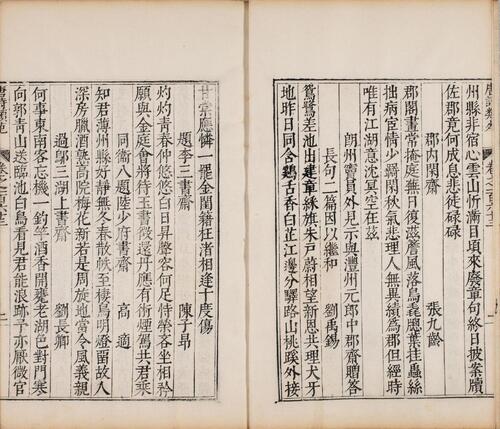 州縣非宿心雲山忻滿目頃來廢章句終日披案牘
佐郡竟何成息悲徒碌碌
郡内閑齋
張九齡
郡閣晝常掩庭蕪日復滋簷風落鳥毳牕葉挂蟲絲
拙病宦情少羇閑秋氣悲理人無異績爲郡但經時
唯有江湖意沈冥空在兹
朗州竇員外見示與澧州元郎中郡齋贈答
長句二篇因以繼和
劉禹錫
鴛鷺差池出建章綵旗朱戸蔚相望新恩共理犬牙
地昨日同含鷄舌香白芷江邊分驛路山桃蹊外接
甘棠應憐一罷金閨籍枉渚相逢十度傷
題李三書齋
陳子昻
灼灼青春仲悠悠白日昇聲容何足恃榮吝坐相矜
願與金庭會將待玉書徵還丹應有術煙駕共君乗
同衞八題陸少府書齋
高適
知君薄州縣好静無冬春散帙至棲鳥明燈留故人
深房臘酒熟高院梅花新若是周旋地當令風義親
過鄔三湖上書齋
劉長卿
何事東南客忘機一釣竿酒香開甕老湖色對門寒
向郭青山送臨池白鳥看見君能浪跡予亦厭微官